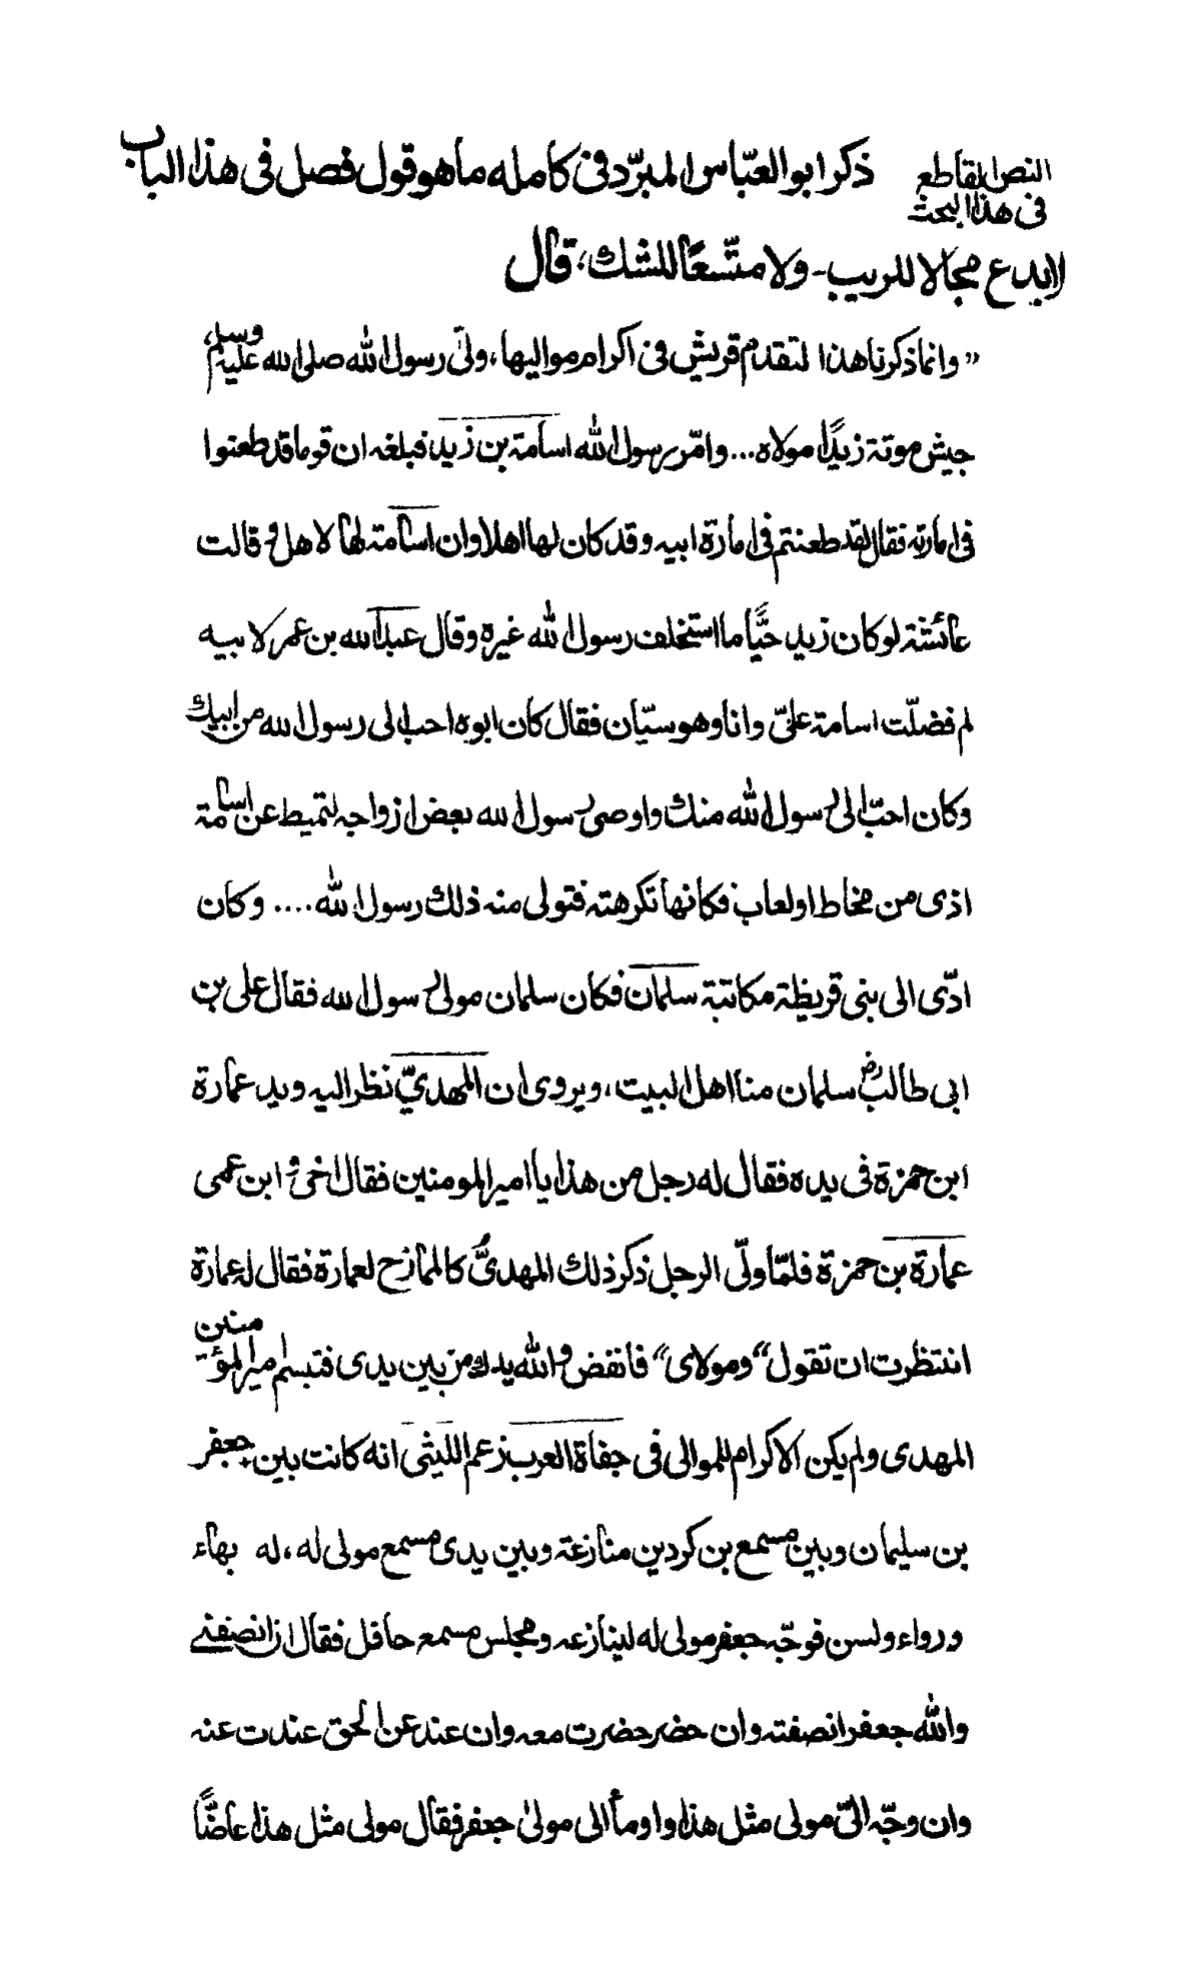 النص القاطع
فى هذا البحث
ذكر ابو العبّاس المبرّد فى كامله ما هو قول فصل فى هذا الباب
لا يدع مجالا للريب- ولا متّسعًا للشك، قال
” وانما ذكرنا هذا لتقدم قريش فى اكرام مواليها، ولىّ رسول الله صلى الله عليه وسلم
جيش موتة زيدًا مولاه... وامّر رسول الله اسامة بن زيد فبلغه ان قوما قد طعنوا
فى امارته فقال لقد طعنتم فى امارة ابيه وقد كان لها اهلا وان اسامة لها لاهل و قالت
عائشة لو كان زيد حيًّا ما استخلف رسول الله غيره وقال عبد الله بن عمر لابيه
لم فضلّت اسامة علىّ وانا وهو سيّان فقال كان ابوه احب الى رسول الله من ابيك
وكان احبّ الى رسول الله منك واوصى رسول الله بعض ازواجه لتميط عن اسامة
اذى من مخاط او لعاب فكانها تكرهته فتولى منه ذلك رسول الله.... وكان
ادّى الى بنى قريظة مكاتبة سلمان فكان سلمان مولى رسول الله فقال على بن
ابى طالب رض سلمان منا اهل البيت، ويروى ان المهدىّ نظر اليه ويد عمارة
ابن حمزة فى يده فقال له رجل من هذا يا امير المومنين فقال اخى و ابن عمى
عمارة بن حمزة فلمّا ولّى الرجل ذكر ذلك المهدىُّ كالممازح لعمارة فقال له عمارة
انتظرت ان تقول “ومولاى” فانفض والله يدك من بين يدى فتبسم امير المؤمنين
المهدى ولم يكن الاكرام للموالى فى جفاة العرب زعم الليثى انه كانت بين جعفر
بن سليمان وبين مسمع بن كردين منازعة وبين يدى مسمع مولى له، له بهاء
ورواء ولسن فوجّه جعفر مولى له لينازعه ومجلس مسمع حافل فقال ان انصفنى
والله جعفر انصفته وان حضر حضرت معه وان عند عن الحق عندت عنه
وان وجّه الىّ مولى مثل هذا واومأ الى مولىٰ جعفر فقال مولى مثل هذا عاضًّا